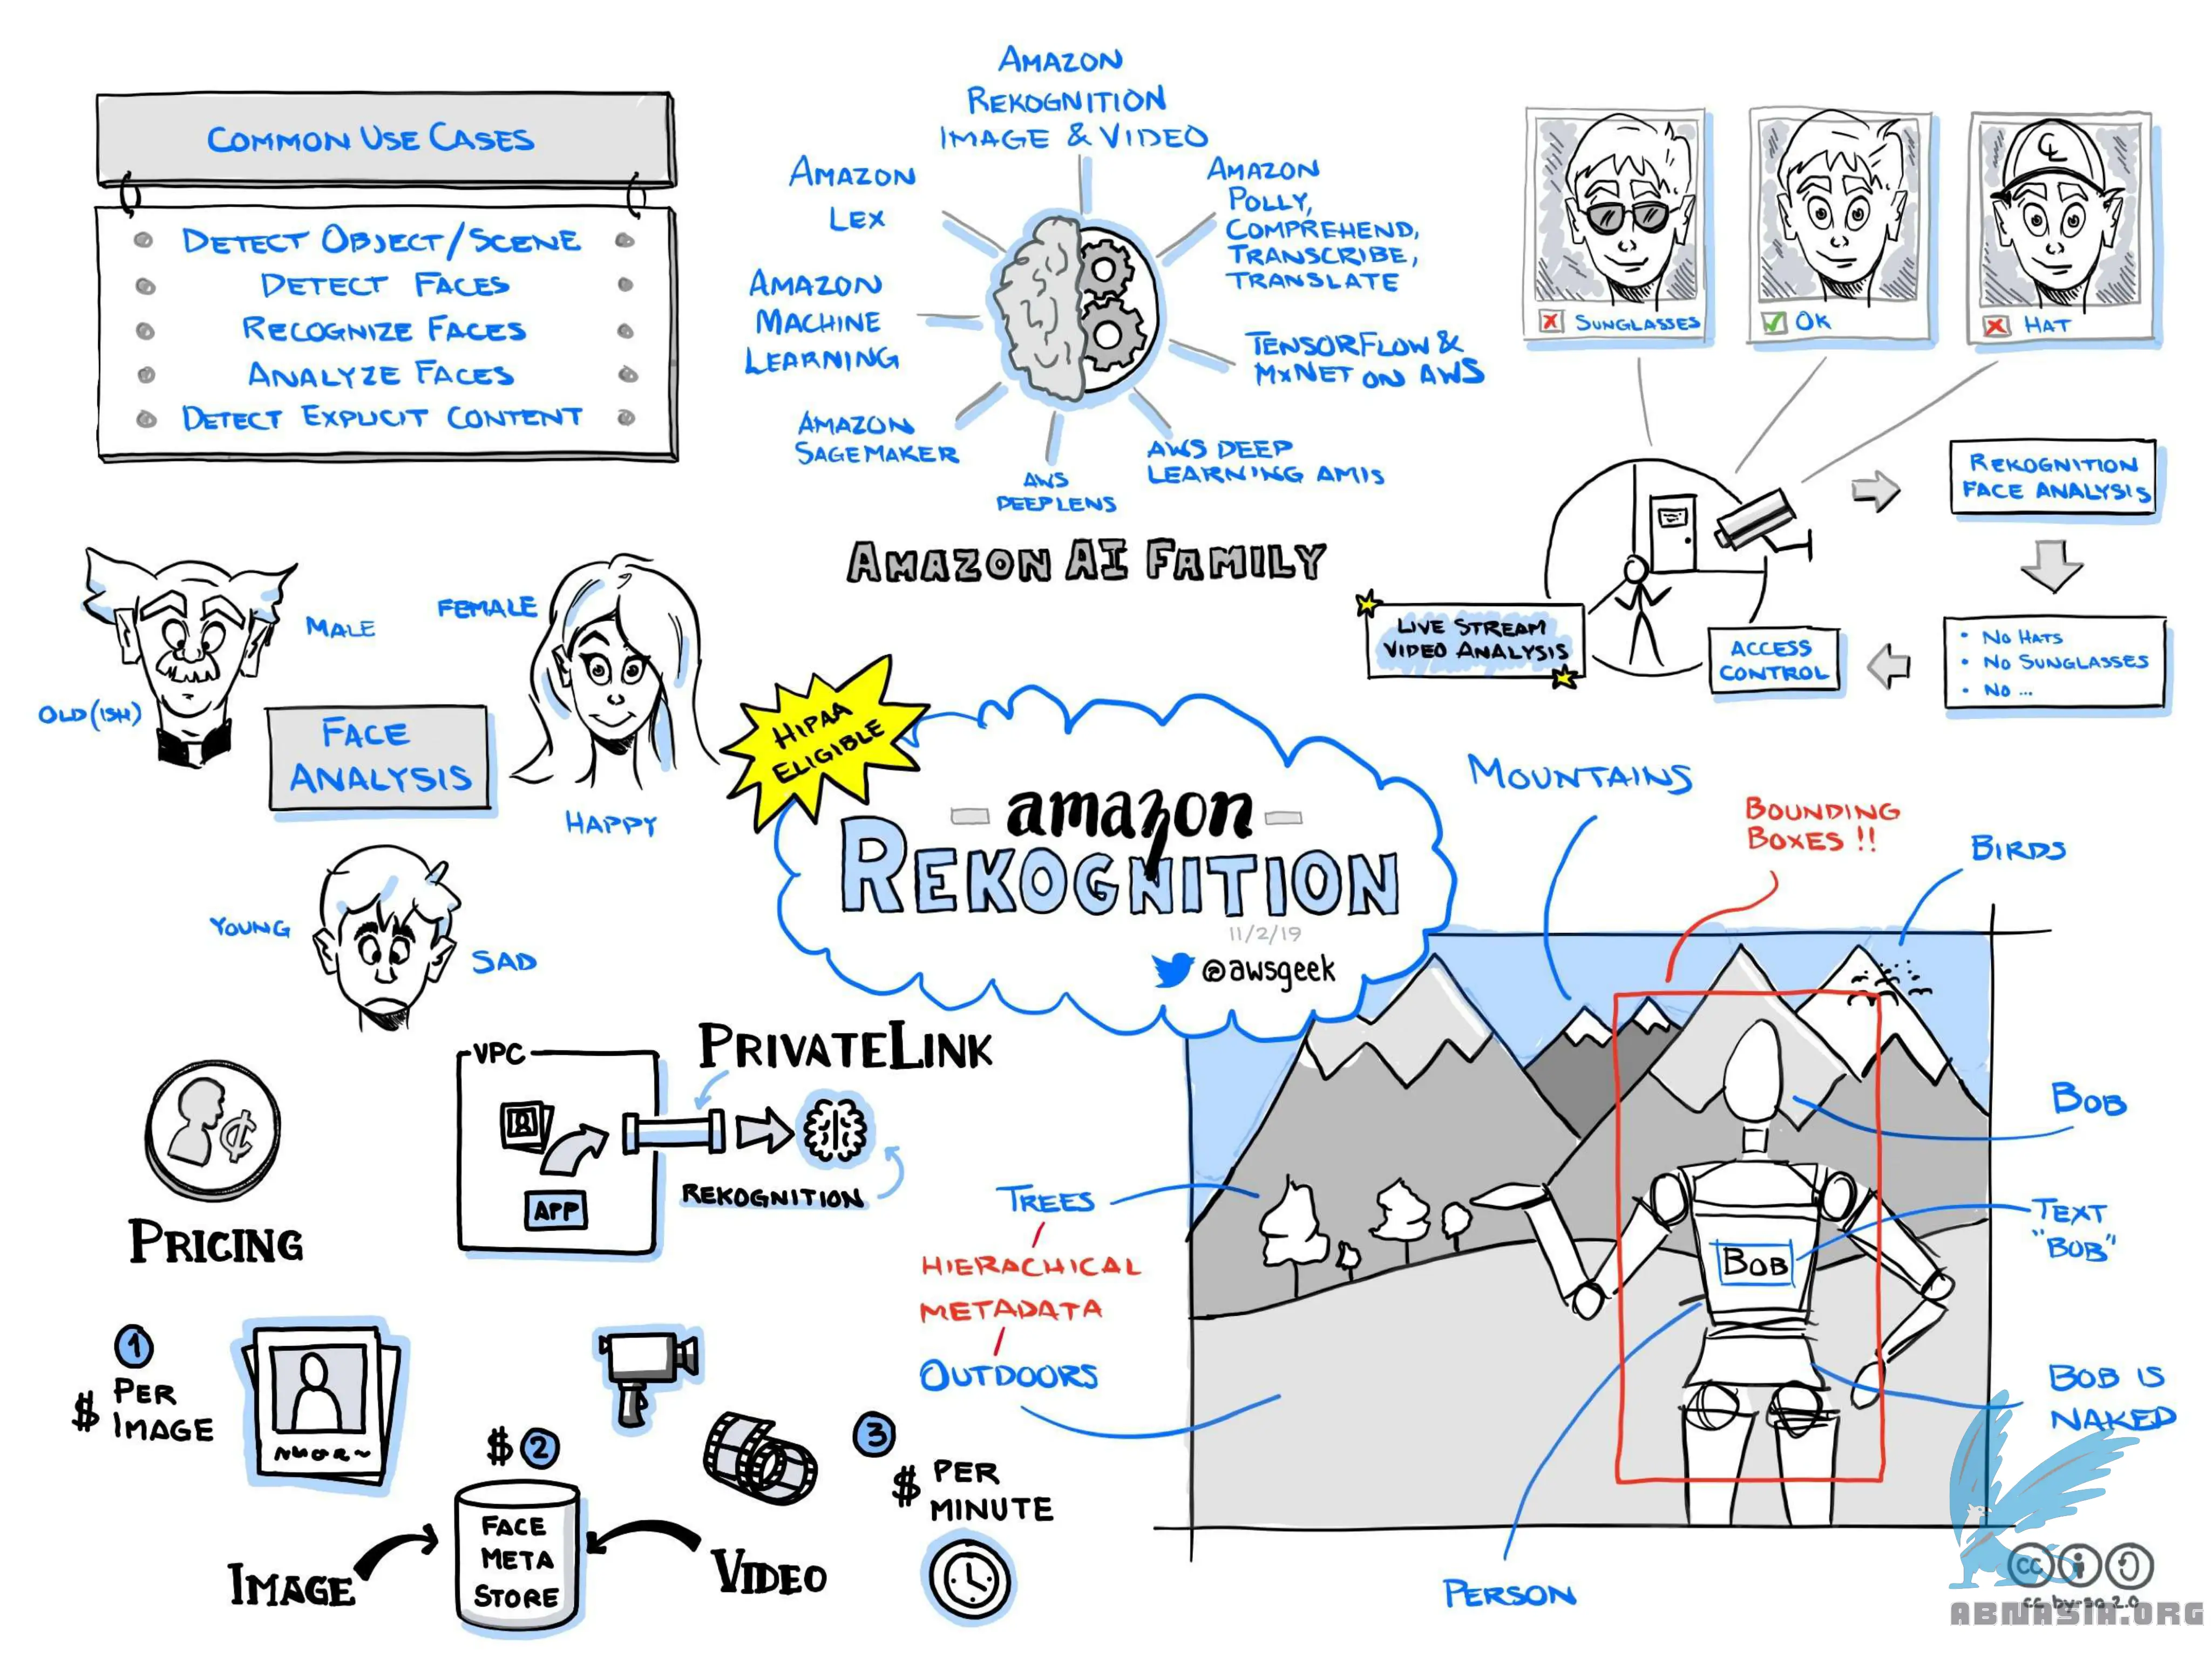 COMMON USE CASES
DETECT OBJECT/SCENE
DETECT FACES
RECOGNIZE FACES
ANALYZE FACES
DETECT EXPLICIT CONTENT
AMAZON
REKOGNITION
IMAGE & VIDEO
AMAZON
LEX
AMAZON
POLLY,
COMPREHEND,
TRANSCRIBE,
TRANSLATE
AMAZON
MACHINE
LEARNING
TENSORFLOW &
MXNET ON AWS
AMAZON
SAGEMAKER
AWS
DEEPLENS
AWS DEEP
LEARNING AMIS
AMAZON AI FAMILY
SUNGLASSES
OK
CL
HAT
REKOGNITION
FACE ANALYSIS
• NO HATS
• NO SUNGLASSES
• NO ...
ACCESS
CONTROL
LIVE STREAM
VIDEO ANALYSIS
MALE
OLD(ISH)
FEMALE
HAPPY
FACE
ANALYSIS
YOUNG
SAD
HIPAA
ELIGIBLE
- amazon -
REKOGNITION
11/2/19
@awsgeek
MOUNTAINS
BOUNDING
BOXES !!
BIRDS
BOB
TEXT
"BOB"
BOB
BOB IS
NAKED
PERSON
TREES
HIERACHICAL
METADATA
OUTDOORS
PRIVATELINK
VPC
APP
REKOGNITION
¢
PRICING
1
$ PER
IMAGE
$ 2
FACE
META
STORE
IMAGE
VIDEO
3
$ PER
MINUTE
cc
cc by-sa 2.0
ABNASIA.ORG